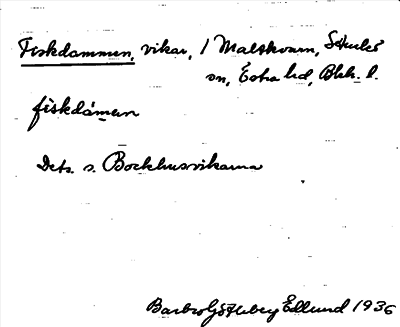 Fiskdammen, vikar, / Maltkvarn,
sn, Östra hd, Blek. l.
fiskdámen
Dets. s. Bockhusvikarna
Barbro Edlund 1936